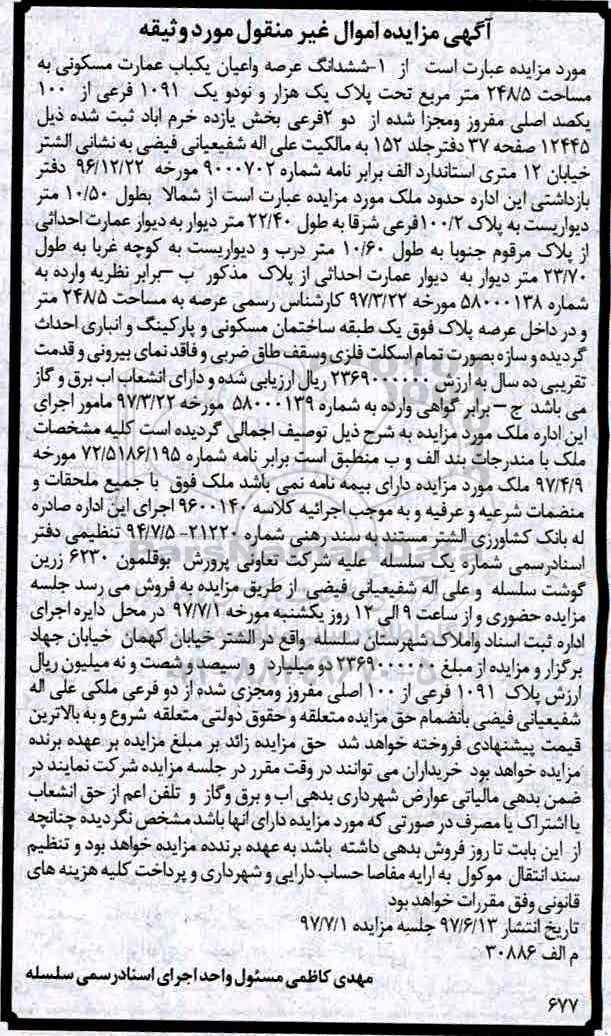 آگهی مزایده اموال غیر منقول مورد وثیقه
مورد مزایده عبارت است از ۱-ششدانگ عرصه واعیان یکباب عمارت مسکونی به
مساحت ۲۴۸/۵ متر مربع تحت پلاک یک هزار و نودو یک ۱۰۹۱ فرعی از ۱۰۰
یکصد اصلی مفروز ومجزا شده از دو ۲فرعی بخش یازده خرم اباد ثبت شده ذیل
۱۲۴۴۵ صفحه ۳۷ دفترجلد ۱۵۲ به مالکیت علی اله شفیعیانی فیضی به نشانی الشتر
خیابان ۱۲ متری استاندارد الف برابر نامه شماره ۹۰۰۰۷۰۲ مورخه ۹۶/۱۲/۲۲ دفتر
بازداشتی این اداره حدود ملک مورد مزایده عبارت است از شمالا بطول ۱۰/۵۰ متر
دیواریست به پلاک ۱۰۰/۲فرعی شرقا به طول ۲۲/۴۰ متر دیوار به دیوار عمارت احداثی
از پلاک مرقوم جنوبا به طول ۱۰/۶۰ متر درب و دیواریست به کوچه غربا به طول
۲۳/۷۰ متر دیوار به دیوار عمارت احداثی از پلاک مذکور ب –برابر نظریه وارده به
شماره ۵۸۰۰۰۱۳۸ مورخه ۹۷/۳/۲۲ کارشناس رسمی عرصه به مساحت ۲۴۸/۵ متر
و در داخل عرصه پلاک فوق یک طبقه ساختمان مسکونی و پارکینگ و انباری احداث
گردیده و سازه بصورت تمام اسکلت فلزی وسقف طاق ضربی و فاقد نمای بیرونی و قدمت
تقریبی ده سال به ارزش ۲۳۶۹۰۰۰۰۰۰ ریال ارزیابی شده و دارای انشعاب اب برق و گاز
می باشد ج – برابر گواهی وارده به شماره ۵۸۰۰۰۱۳۹ مورخه ۹۷/۳/۲۲ مامور اجرای
این اداره ملک مورد مزایده به شرح ذیل توصیف اجمالی گردیده است کلیه مشخصات
ملک با مندرجات بند الف و ب منطبق است برابر نامه شماره ۷۲/۵۱۸۶/۱۹۵ مورخه
۹۷/۴/۹ ملک مورد مزایده دارای بیمه نامه نمی باشد ملک فوق با جمیع ملحقات و
منضمات شرعیه و عرفیه و به موجب اجرائیه کلاسه ۹۶۰۰۱۴۰ اجرای این اداره صادره
له بانک کشاورزی الشتر مستند به سند رهنی شماره ۲۱۲۲۰-۹۴/۷/۵ تنظیمی دفتر
اسنادرسمی شماره یک سلسله علیه شرکت تعاونی پرورش بوقلمون ۶۲۳۰ زرین
گوشت سلسله و علی اله شفیعیانی فیضی از طریق مزایده به فروش می رسد جلسه
مزایده حضوری و از ساعت ۹ الی ۱۲ روز یکشنبه مورخه ۹۷/۷/۱ در محل دایره اجرای
اداره ثبت اسناد واملاک شهرستان سلسله واقع در الشتر خیابان کهمان خیابان جهاد
برگزار و مزایده از مبلغ ۲۳۶۹۰۰۰۰۰۰ دو میلیارد و سیصد و شصت و نه میلیون ریال
ارزش پلاک ۱۰۹۱ فرعی از ۱۰۰ اصلی مفروز ومجزی شده از دو فرعی ملکی علی اله
شفیعیانی فیضی بانضمام حق مزایده متعلقه و حقوق دولتی متعلقه شروع و به بالاترین
قیمت پیشنهادی فروخته خواهد شد حق مزایده زائد بر مبلغ مزایده بر عهده برنده
مزایده خواهد بود خریداران می توانند در وقت مقرر در جلسه مزایده شرکت نمایند در
ضمن بدهی مالیاتی عوارض شهرداری بدهی اب و برق وگاز و تلفن اعم از حق انشعاب
یا اشتراک یا مصرف در صورتی که مورد مزایده دارای انها باشد مشخص نگردیده چنانچه
از این بابت تا روز فروش بدهی داشته باشد به عهده برندده مزایده خواهد بود و تنظیم
سند انتقال موکول به ارایه مفاصا حساب دارایی و شهرداری و پرداخت کلیه هزینه های
قانونی وفق مقررات خواهد بود
تاریخ انتشار ۹۷/۶/۱۳ جلسه مزایده ۹۷/۷/۱
م الف ۳۰۸۸۶
مهدی کاظمی مسئول واحد اجرای اسنادرسمی سلسله
۶۷۷
ParsNamadData